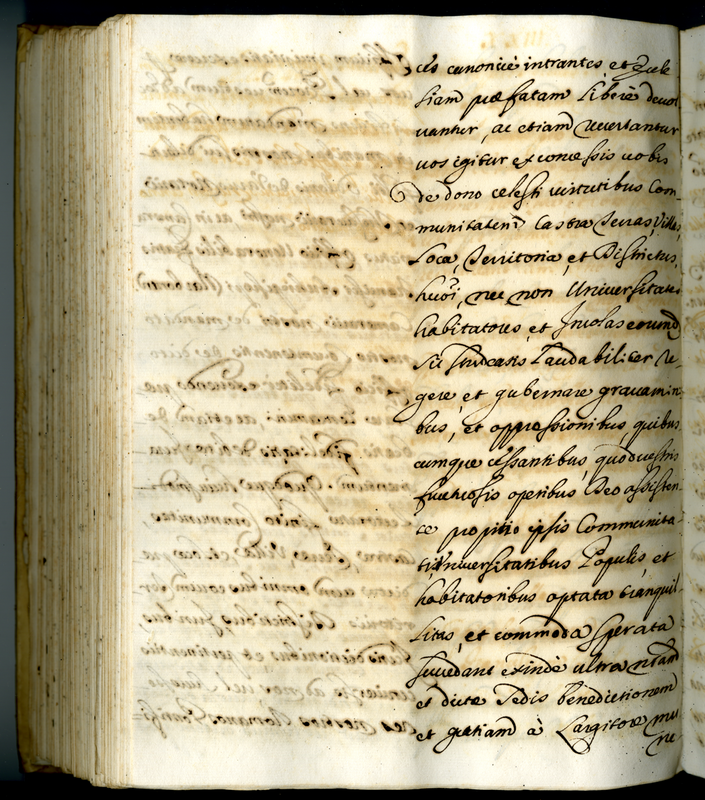 ces canonicè intrantes, et Eccle
siam præfatam Liberè devol
vantur, ac etiam revertantur
vos igitur ex concessis vobis
de dono celesti virtutibus Com-
munitatem Castra Terras, Villas,
Loca, Territoria, et Districtus,
huiõi, nec non Universitates
habitatores, et Incolas eorumd
sic studeatis Laudabiliter re-
gere, et gubernare gravamini
bus, et oppressionibus, quibus
cumque cessantibus, quod vestris
fructuosis operibus Deo assisten-
te propitio ipsis Communita-
ti, Universitatibus Populis, et
habitatoribus optata tranquil-
litas, et commoda sperata
succedant exinde ultra nram
et dictæ Sedis benedictionem
et gratiam à Largitore mu
ne